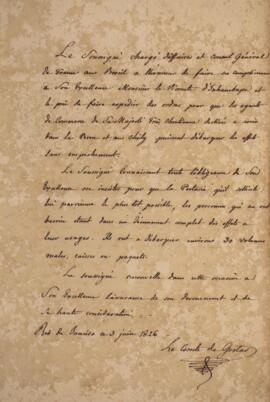 Le Soussigné chargé d'affaires et consul Général
de France au Brésil a l'honneur de faire ses complimens
a Son Excellence Monsieur le Vicomte d'Inhambupe et
le prie de faire expédier des ordres pour que les agents
de Commerce de Sa Majesté Très Chrétienne destinés a
dans le Perou et au chily puissent débarquer les effets
sans empêchement.
Le Soussigné Connaissant toute l'obligeance de Son
Excellence ose insister pour que la Portaria qu'il sollicite
lui parvienne le plutot possible, les personnes qui en ont
besoin étant dans un dénuement complet des effets a
leur usages. Ils ont a débarquer environs 30 volumes
malles, caisses ou paquets.
Le soussigné renouvelle dans cette occasion a
Son Excellence l'assurance de son dévouement et de
sa haute considération.
Rio de Janeiro ce 3 juin 1826
Le Comte de Gestas